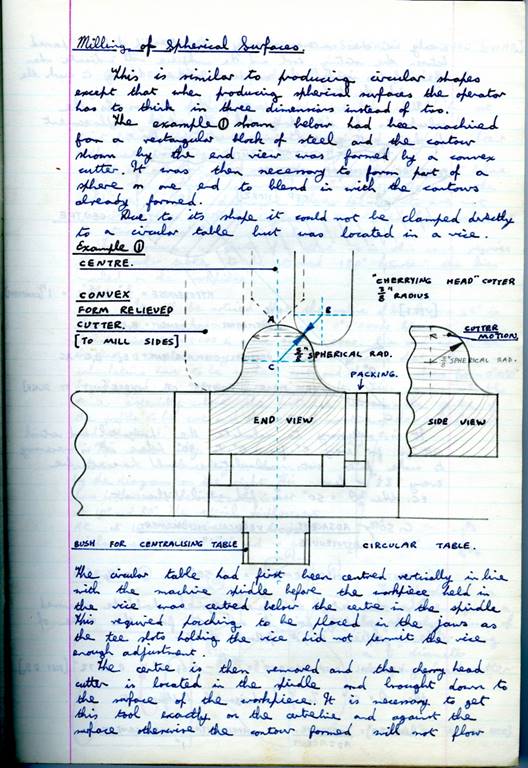 Milling of Spherical Surfaces.
This is similar to producing circular shapes
except that when producing spherical surfaces the operator
has to think in three dimensions instead of two.
The example ① shown below had been machined
from a rectangular block of steel and the contour
shown by the end view was formed by a convex
cutter. It was then necessary to form part of a
sphere on one end to blend in with the contours
already formed.
Due to its shape it could not be clamped directly
to a circular table but was located in a vice.
Example ①
CENTRE.
CONVEX
FORM RELIEVED
CUTTER.
[TO MILL SIDES]
"CHERRYING HEAD" CUTTER
RADIUS
A
B
C
SPHERICAL RAD.
PACKING.
CUTTER
MOTION
SPHERICAL RAD.
END VIEW
SIDE VIEW
BUSH FOR CENTRALISING TABLE
CIRCULAR TABLE.
The circular table had first been centred vertically in line
with the machine spindle before the workpiece held in
the vice was centred below the centre in the spindle
This required packing to be placed in the jaws as
the tee slots holding the vice did not permit the vice
enough adjustment.
The centre is then removed and the cherry head
cutter is located in the spindle and brought down to
the surface of the workpiece. It is necessary to get
this tool exactly on the centreline and against the
surface otherwise the contour formed will not flow